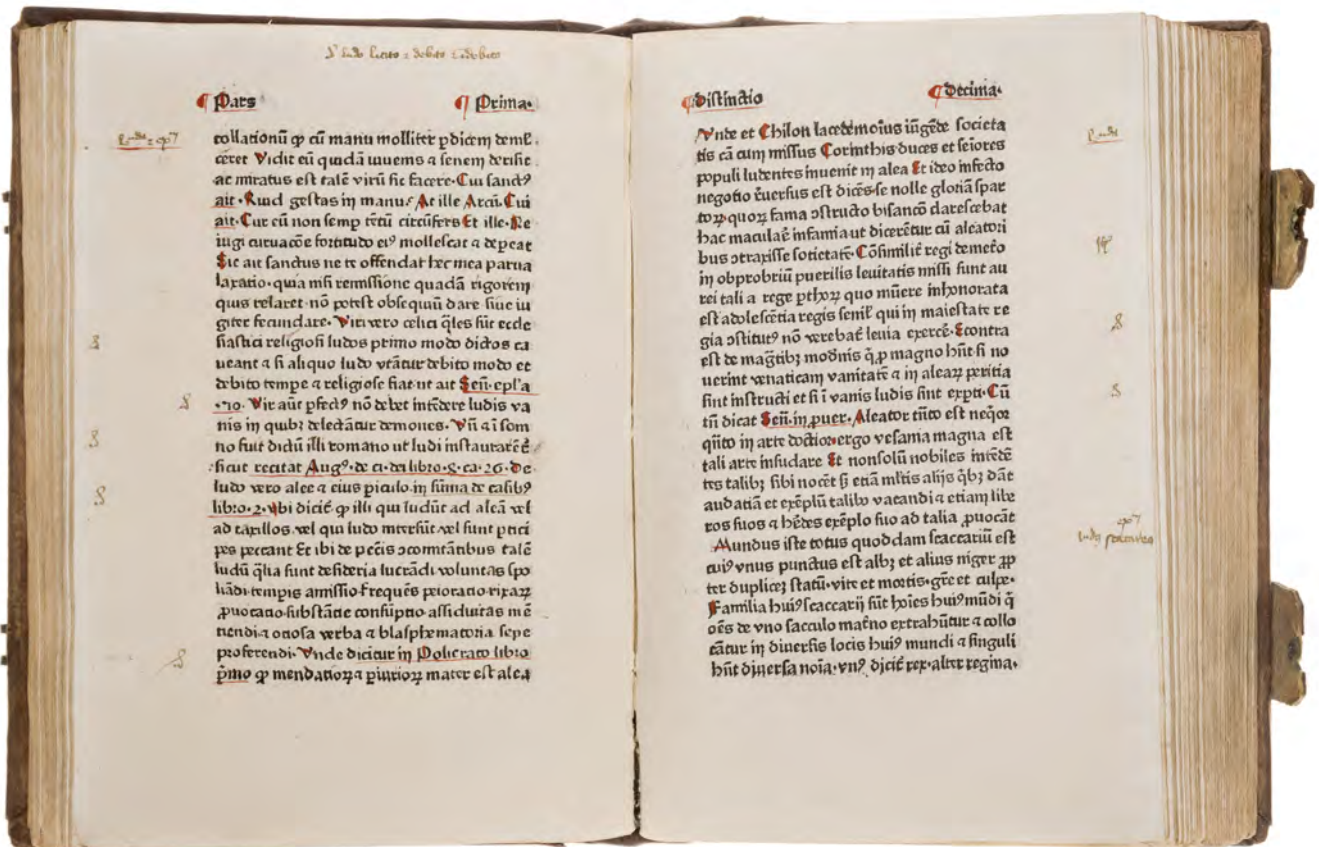 Pars Prima.
collationū ꝙ cū manu molliter ꝑdicem demł
ceret Vidit eū quidā iuuenis ⁊ senem derisit
ac miratus est talē virū sic facere. Cui sanctꝰ
ait. Quid gestas in manu? At ille Arcū. Cui
ait. Cur eū non semp tētū circūfers Et ille. Ne
iugi curuacōe fortitudo eiꝰ mollescat ⁊ depeat
Sic ait sanctus ne te offendat hec mea parua
laxatio. quia nisi remissione quadā rigorem
quis relaxet. nō potest obsequiū dare siue iu
giter fecundare. Viri vero celici q̄les sūt eccle
siastici religiosi ludos primo modo dictos ca
ueant ⁊ si aliquo ludo vtātur debito modo et
debito tempe ⁊ religiose fiat. ut ait Seń. epl'a
.70. Vir aūt ꝑfectꝰ nō debet intēdere ludis va
nis in quibꝫ delectātur demones. Vn̄ ⁊ ī som
no fuit dictū illi romano ut ludi instaurarēt
sicut recitat Augꝰ. de ci. dei libro. 8. ca. 26. De
ludo vero alee ⁊ eius piculo. in sūma de casibꝰ
libro. 2. Vbi dicit ꝙ illi qui ludūt ad aleā vel
ad taxillos. vel qui ludo intersūt vel sunt ptici
pes peccant Et ibi de pctīs ↄcomitātibus talē
ludū q̄lia sunt desideria lucrādi. voluntas spo
liādi. tempis amissio. frequēs peioratio. rixaꝝ
ꝓuocatio. substātie consūptio. assiduitas mē
tiendi. ⁊ ociosa verba ⁊ blasphematoria sepe
proferendi. Vnde dicitur in Policrato libro
p̄mo ꝙ mendatioꝝ ⁊ piurioꝝ mater est alea
Distinctio Decima.
Vnde et Chilon lacedemoīus iūgēde societa
tis cā cum missus Corinthis duces et seīores
populi ludentes inuenit in alea Et ideo infecto
negotio reuersus est dicēs se nolle gloriā spar
toꝝ quoꝝ fama ↄstructo bisanco clarescebat
hac maculare infamia ut dicerētur cū aleatori
bus ↄtraxisse societatē. Cōsimilit̄ regi demeto
in obprobriū puerilis leuitatis missi sunt au
rei tali a rege pthoꝝ quo mūere inhonorata
est adolescētia regis senil qui in maiestate re
gia ↄstitutꝰ nō verebat̄ leuia exercē. Econtra
est de magtībꝫ modnis q̄ ꝓ magno hn̄t si no
uerint venaticam vanitatē ⁊ in aleaꝝ peritia
sint instructi et si ī vanis ludis sint expti. Cū
tn̄ dicat Seń. in ꝓuer. Aleator tāto est neqor
qn̄to in arte doctior. ergo vesania magna est
tali arte insudare Et non solū nobiles intēdē
tes talibꝫ sibi nocēt sꝫ etiā mltis alijs qbꝫ dāt
audatiā et exēplū talibꝰ vacandi ⁊ etiam libe
ros suos ⁊ hēdes exēplo suo ad talia ꝓuocāt
Mundus iste totus quoddam scaccariū est
cuiꝰ vnus punctus est albꝫ et alius niger ꝓp
ter duplicem statū. vite et mortis. gr̄e et culpe.
Familia huiꝰ scaccarij sūt hoīes huiꝰ mūdi q̄
oēs de vno sacculo mat̄no extrahūtur ⁊ collo
cātur in diuersis locis huiꝰ mundi ⁊ singuli
hn̄t diuersa noīa. vnꝰ dicit̄ rex. alter regina.